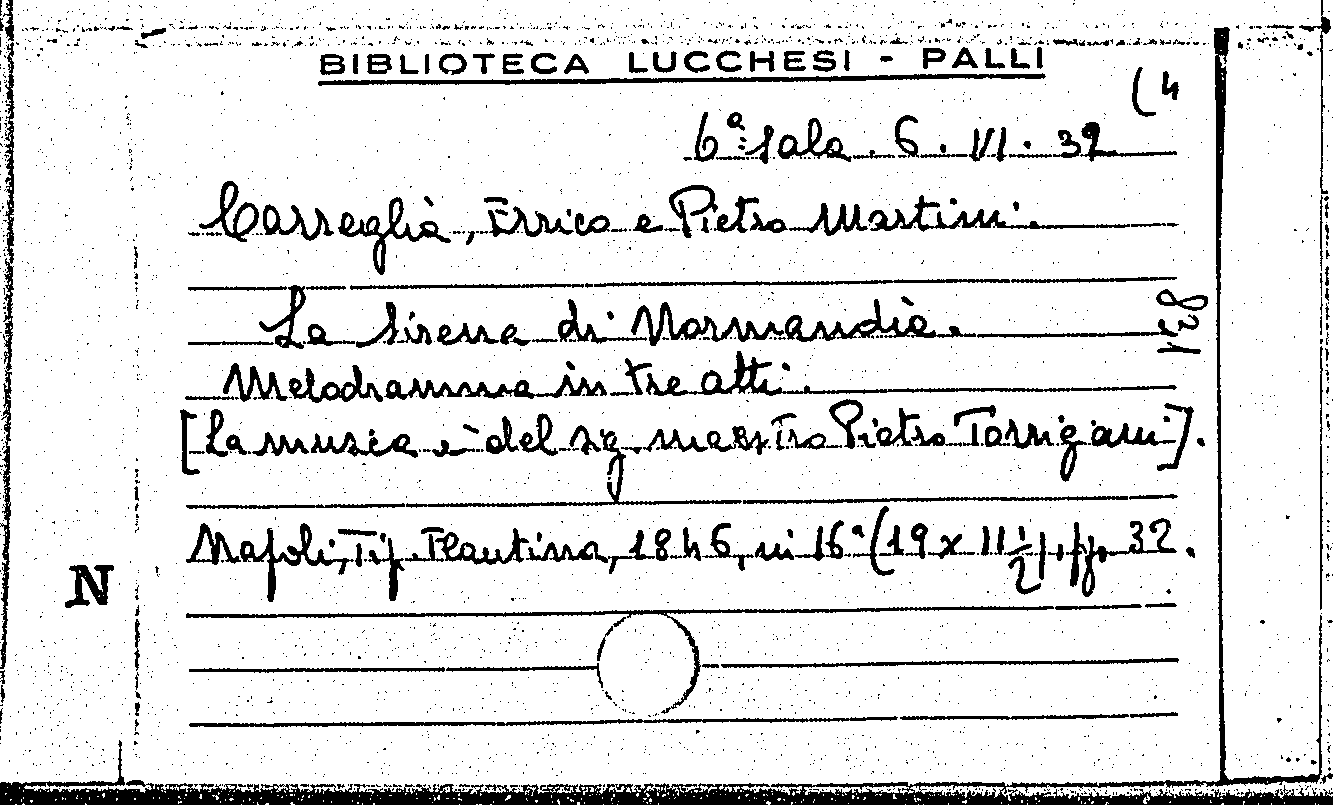 BIBLIOTECA LUCCHESI - PALLI
(4
6ª Sala. 6. VI. 32
Carreglia, Errico e Pietro Martini.
La Sirena di Normandia.
Melodramma in tre atti.
[La musica è del sig. maestro Pietro Torrigiani].
Napoli, Tip. Flautina, 1846, in 16° (19 x 11 1/2), pp. 32.
N